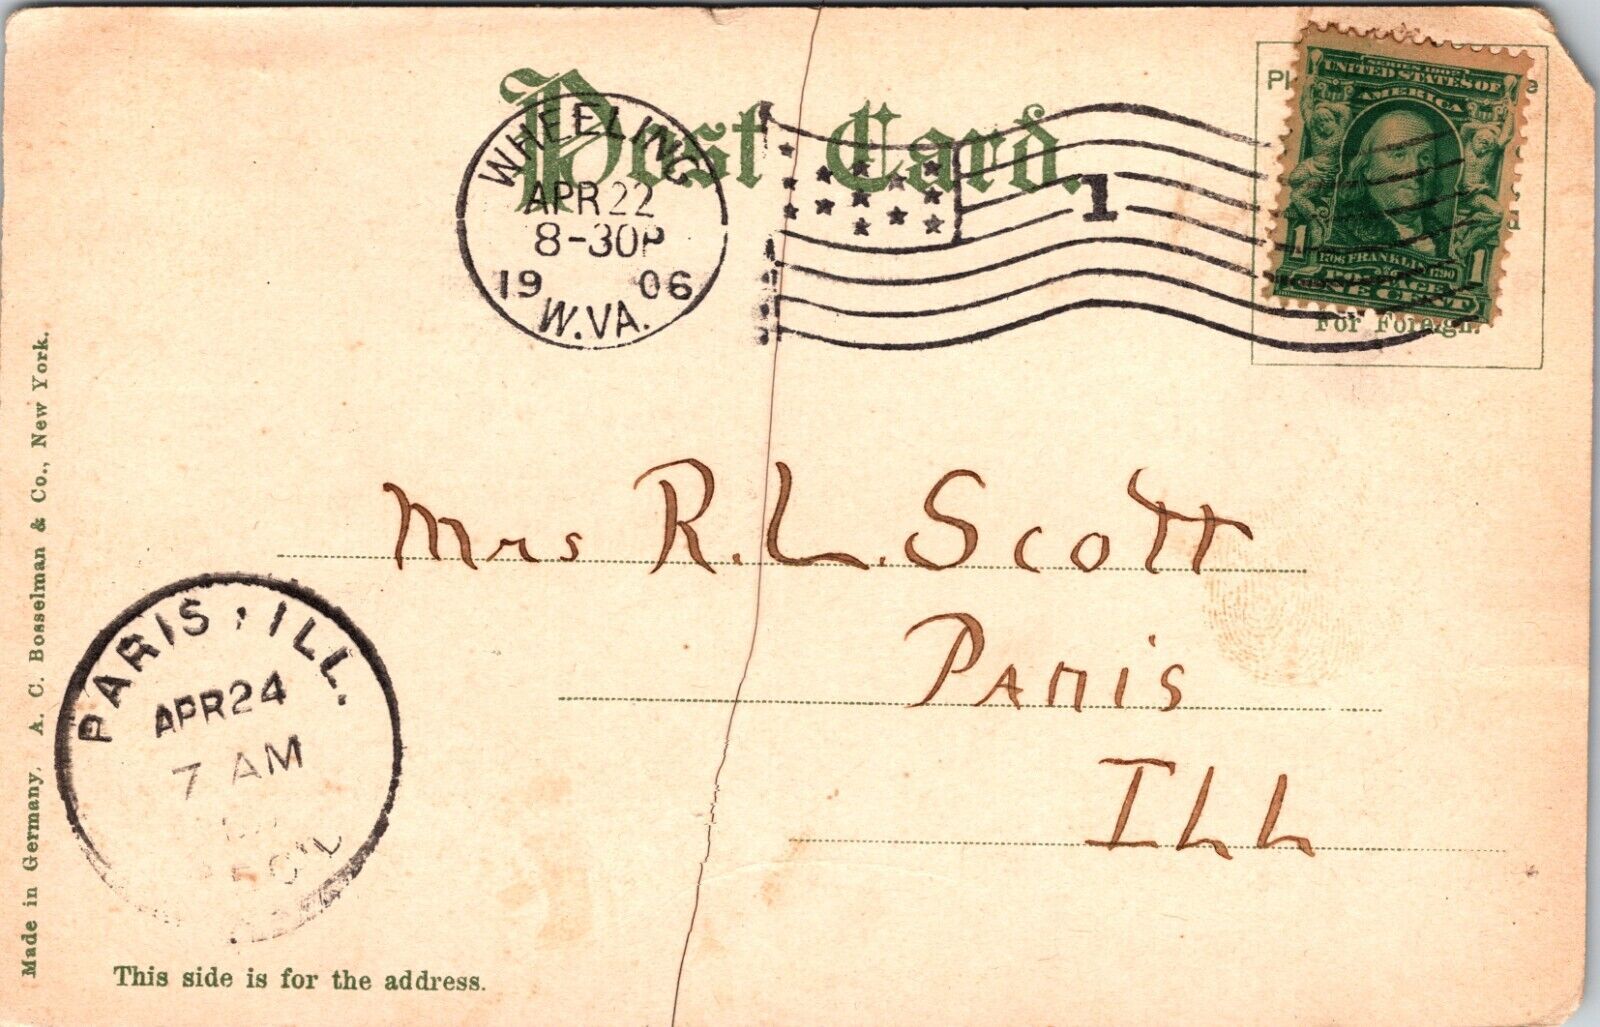 Post Card.
WHEELING
APR 22
8-30P
19 06
W.VA.
1
SERIES 1902
UNITED STATES OF
AMERICA
1 1
1706 FRANKLIN 1790
POSTAGE
ONE CENT
For Foreign.
Mrs R. L. Scott
Paris
Ill
PARIS, ILL.
APR 24
7 AM
REC'D
Made in Germany. A. C. Bosselman & Co., New York.
This side is for the address.